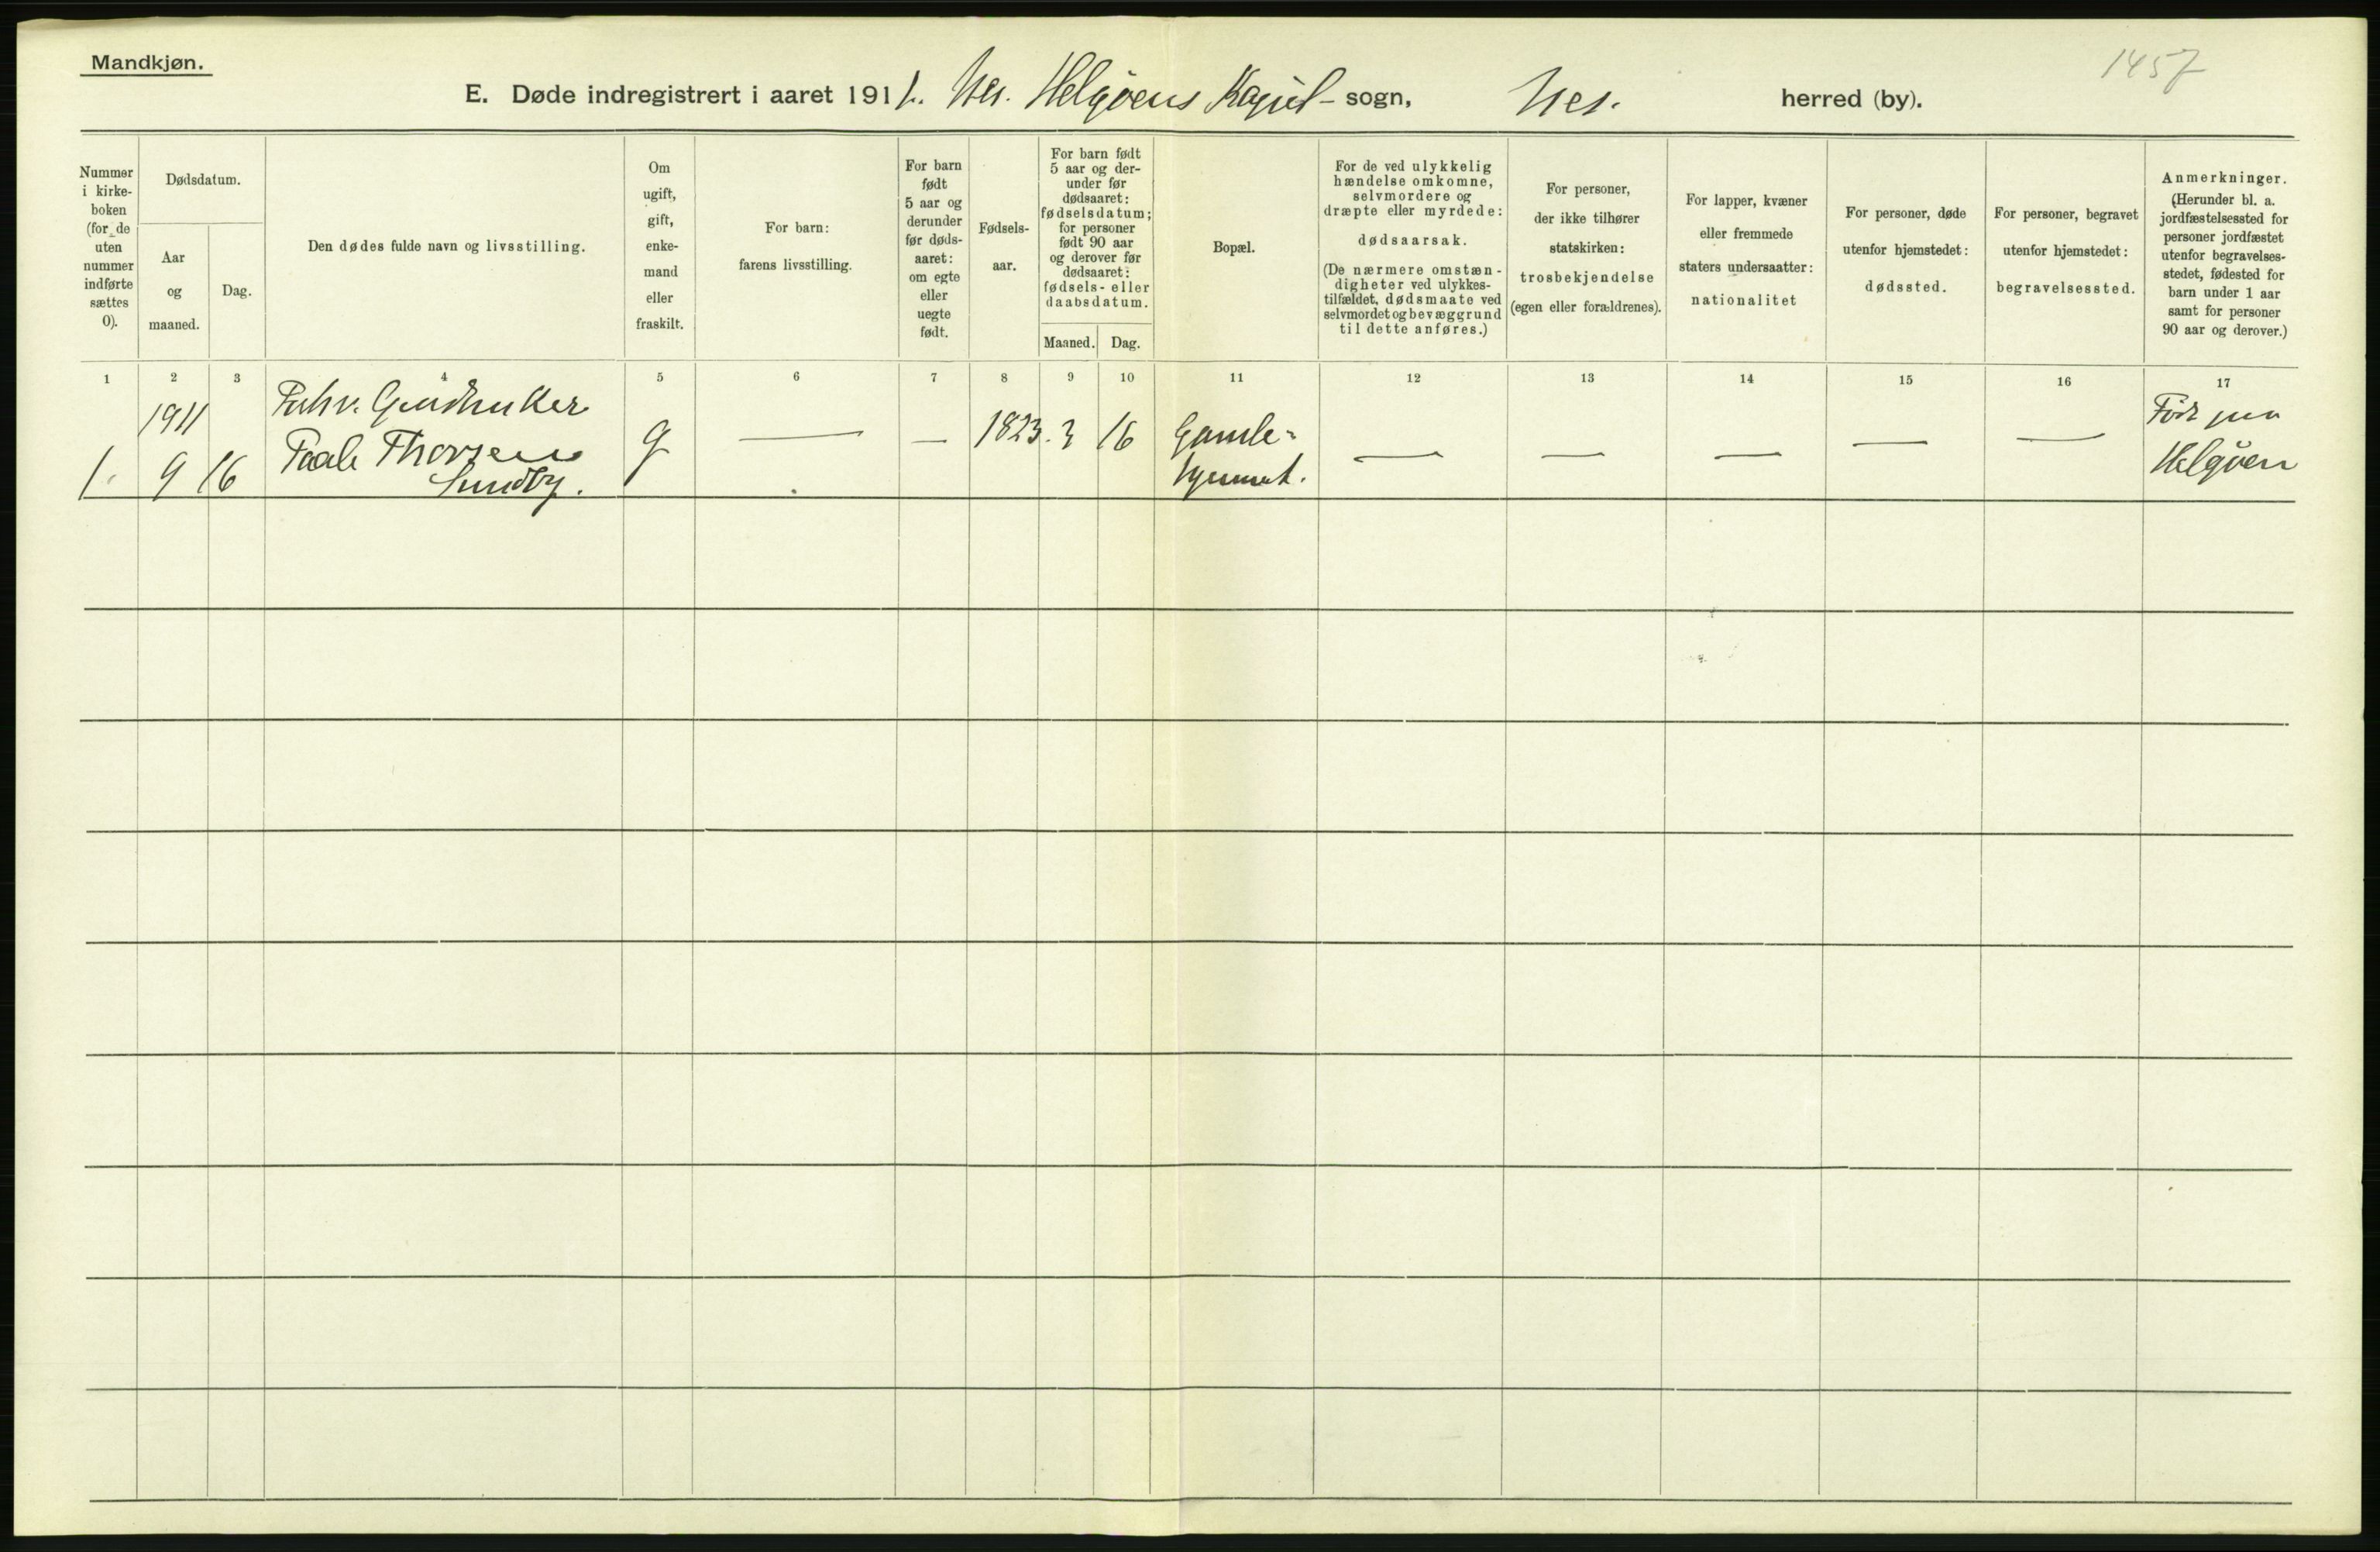 Mandkjøn.
1457
E. Døde indregistrert i aaret 1911. Nes. Helgøens Kapel- sogn, Nes. herred (by).
Nummer i kirke-boken (for de uten nummer indførte sættes 0).
Dødsdatum.
Aar og maaned.
Dag.
Den dødes fulde navn og livsstilling.
Om ugift, gift, enke-mand eller fraskilt.
For barn: farens livsstilling.
For barn født 5 aar og derunder før døds-aaret: om egte eller uegte født.
Fødsels-aar.
For barn født 5 aar og der-under før dødsaaret: fødselsdatum; for personer født 90 aar og derover før dødsaaret: fødsels- eller daabsdatum.
Maaned.
Dag.
Bopæl.
For de ved ulykkelig hændelse omkomne, selvmordere og dræpte eller myrdede: dødsaarsak.
(De nærmere omstæn-digheter ved ulykkes-tilfældet, dødsmaate ved selvmordet og bevæggrund til dette anføres.)
For personer, der ikke tilhører statskirken: trosbekjendelse (egen eller forældrenes).
For lapper, kvæner eller fremmede staters undersaatter: nationalitet
For personer, døde utenfor hjemstedet: dødssted.
For personer, begravet utenfor hjemstedet: begravelsessted.
Anmerkninger.
(Herunder bl. a. jordfæstelsessted for personer jordfæstet utenfor begravelses-stedet, fødested for barn under 1 aar samt for personer 90 aar og derover.)
1 2 3 4 5 6 7 8 9 10 11 12 13 14 15 16 17
1911
1. 9 16
Paale Thorsen
Sundby.
g — — 1823. 3 16
Gamle-
hjemmet.
— — — — —
Født paa
Helgøen